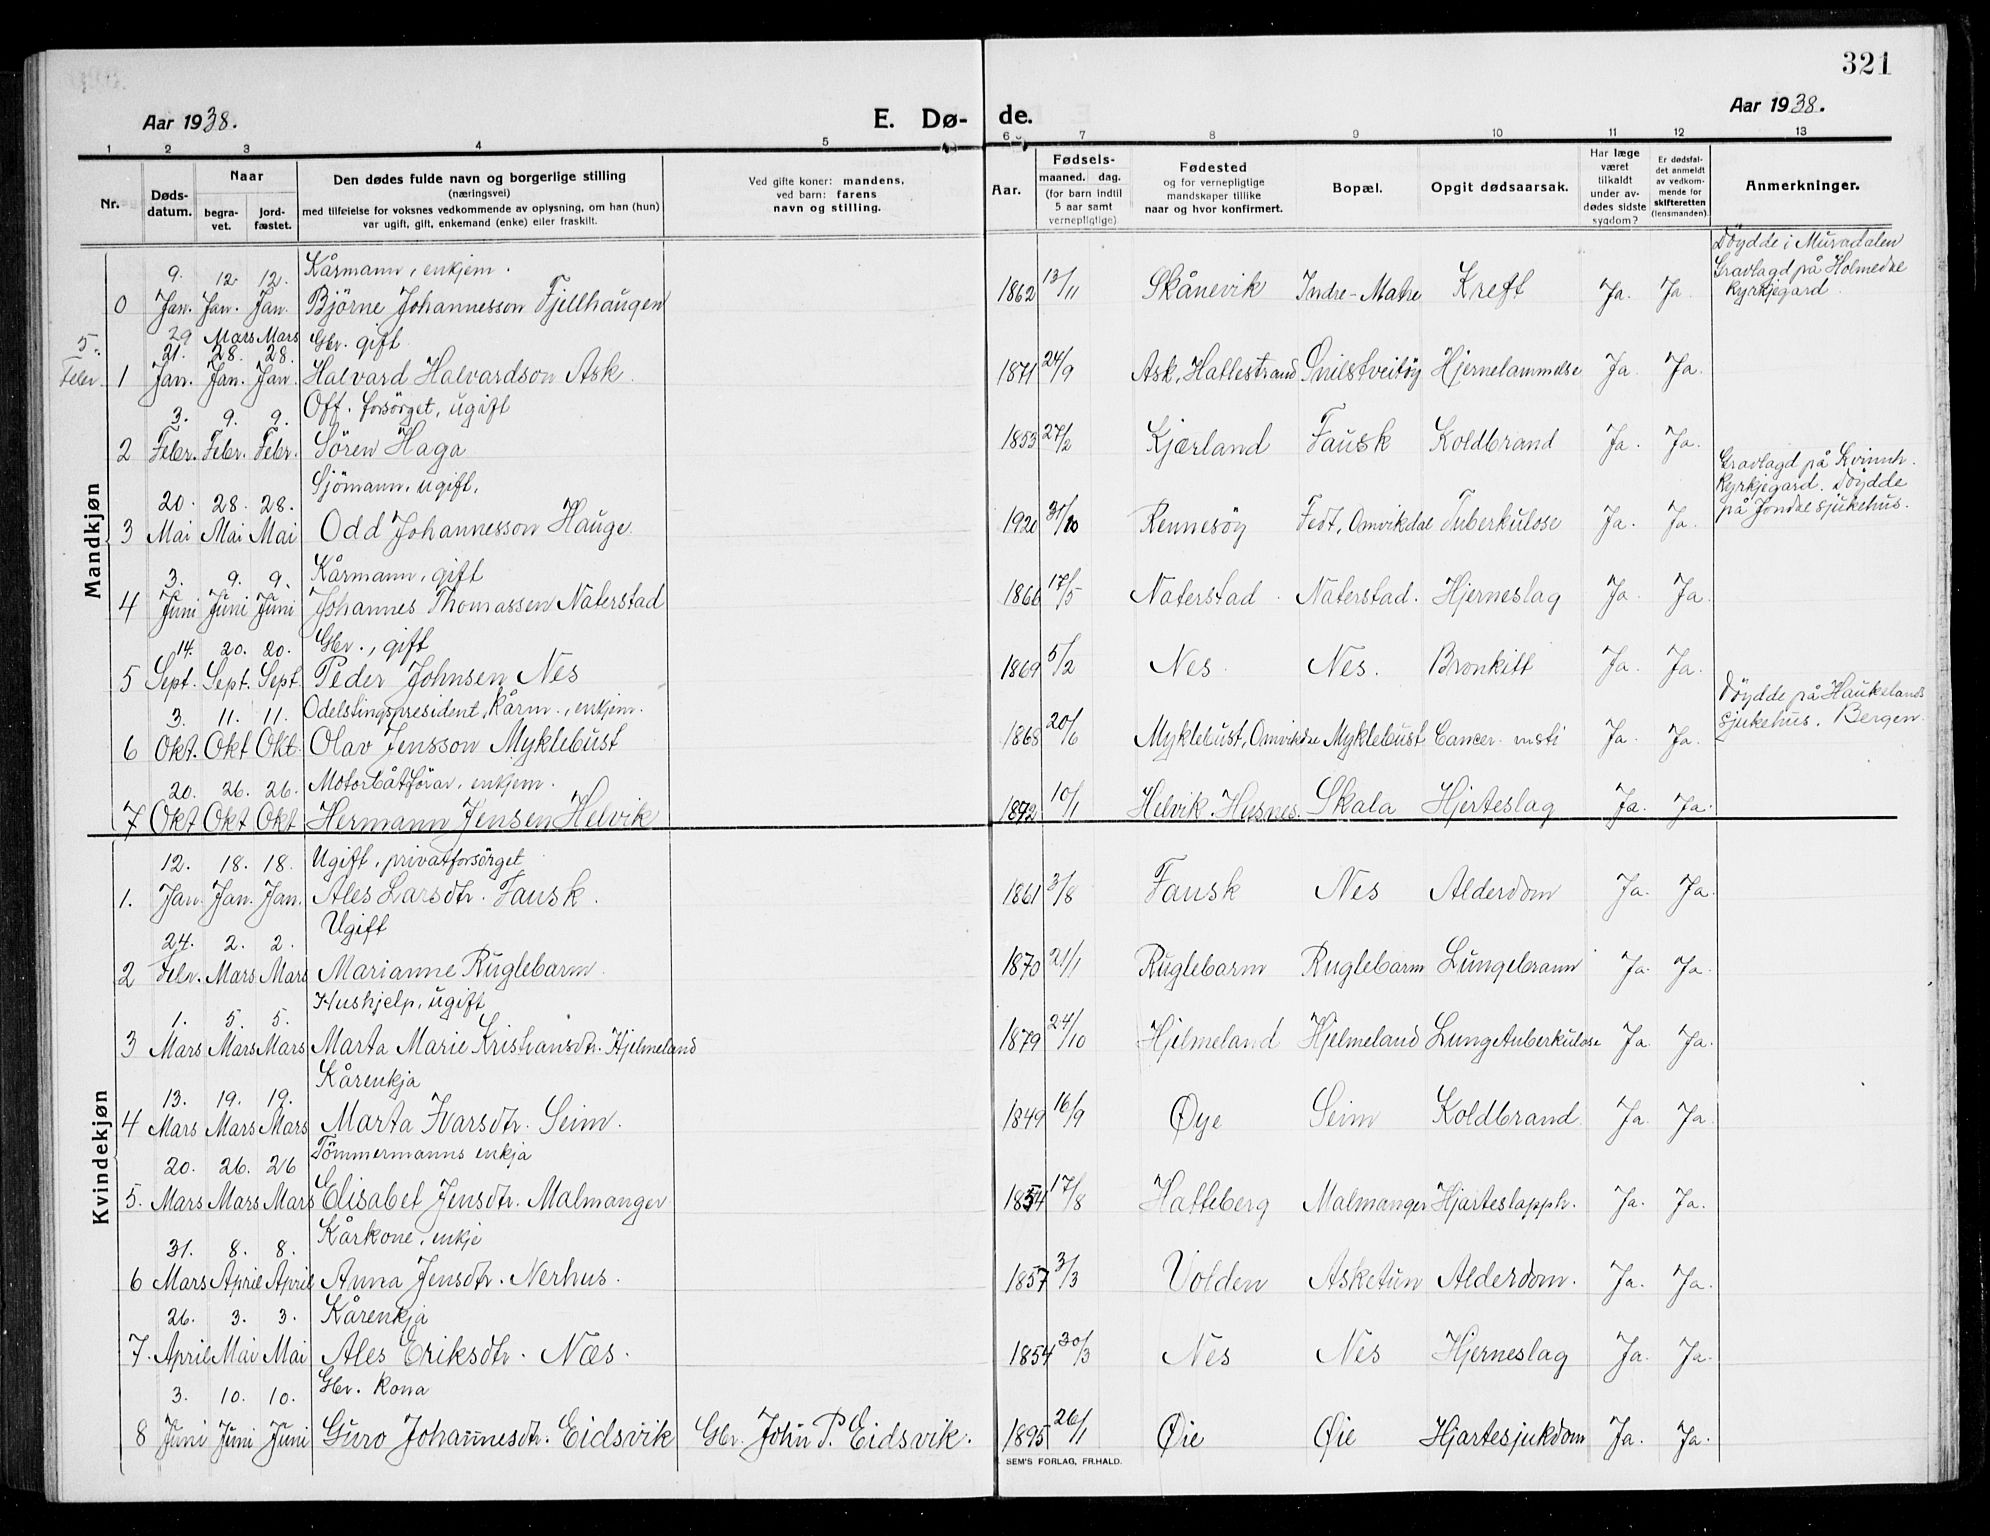 321
Aar 1938.
E. Dø- de.
Aar 1938.
1 2 3 4 5 6 7 8 9 10 11 12 13
Nr.
Døds-datum.
Naar
begra-vet.
jord-fæstet.
Den dødes fulde navn og borgerlige stilling
(næringsvei)
med tilføielse for voksnes vedkommende av oplysning, om han (hun)
var ugift, gift, enkemand (enke) eller fraskilt.
Ved gifte koner: mandens,
ved barn: farens
navn og stilling.
Aar.
Fødsels-
maaned. dag.
(for barn indtil
5 aar samt
vernepligtige).
Fødested
og for vernepligtige
mandskaper tillike
naar og hvor konfirmert.
Bopæl.
Opgit dødsaarsak.
Har læge
været
tilkaldt
under av-
dødes sidste
sygdom?
Er dødsfal-
det anmeldt
av vedkom-
mende for
skifteretten
(lensmanden).
Anmerkninger.
Mandkjøn
Kårmann, enkjem. Døydde i Muradalen
9. 12. 12. Gravlagd på Holmedal
0 Jan. Jan. Jan. Bjørne Johannesson Fjellhaugen 1862 13/11 Skånevik Indre-Matre Kreft Ja. Ja kyrkjegard.
29 Mars Mars Gbr. gift
5. Febr. 21. 28. 28.
1 Jan. Jan. Jan. Halvard Halvardson Ask. 1871 24/9 Ask, Hatlestrand Snilstveitøy Hjernelammelse Ja. Ja.
3. 9. 9. Off. forsörget, ugift
2 Febr. Febr. Febr. Sören Haga 1853 27/2 Kjærland Fausk Koldbrand Ja. Ja.
20. 28. 28. Sjömann, ugift. Gravlagd på Kvinnh. kyrkjegard. Døydde
3 Mai Mai Mai Odd Johannesson Hauge. 1920 31/10 Rennesöy Fedt, Omvikdal Tuberkulose Ja. Ja. på Jondal sjukehus.
3. 9. 9. Kårmann, gift
4 Juni Juni Juni Johannes Thomassen Naterstad 1866 17/5 Naterstad. Naterstad. Hjerneslag Ja. Ja.
14. 20. 20. Gbr., gift
5 Sept. Sept. Sept. Peder Johnsen Nes 1869 5/2 Nes. Nes. Bronkitt Ja. Ja.
3. 11. 11. Odelstingspresident, kårm., enkjem. Døydde på Haukelands
6 Okt. Okt Okt. Olav Jensson Myklebust 1868 20/6 Myklebust, Omvikdal Myklebust Cancer Ja. Ja. sjukehus. Bergen.
20. 26. 26. Motorbåtförar, enkjem.
7 Okt Okt Okt Hermann Jensen Helvik 1872 10/1 Helvik. Husnes. Skala Hjerteslag Ja. Ja.
Kvindekjøn
12. 18. 18. Ugift, privatforsörget
1. Jan. Jan. Jan. Ales Larsdtr. Fausk. 1861 3/8 Fausk Nes Alderdom Ja. Ja.
24. 2. 2. Ugift
2 Febr. Mars Mars Marianne Ruglebarm. 1870 21/1 Ruglebarm Ruglebarm Lungebrann Ja. Ja.
1. 5. 5. Hushjelp, ugift
3 Mars Mars Mars Marta Marie Kristiansdtr. Hjelmeland 1879 24/10 Hjelmeland Hjelmeland Lungetuberkulose Ja. Ja.
13. 19. 19. Kårenkja
4 Mars Mars Mars Marta Ivarsdtr. Seim. 1849 16/9 Øye Seim Koldbrand Ja. Ja.
20. 26. 26 Tömmermanns enkja
5. Mars Mars Mars Elisabet Jensdtr. Malmanger 1854 17/8 Hatteberg Malmanger Hjarteslapph. Ja. Ja.
31. 8. 8. Kårkone, enkje
6 Mars April April Anna Jensdtr. Nerhus. 1857 3/3 Volden Asketun Alderdom. Ja. Ja.
26. 3. 3. Kårenkja
7. April Mai Mai Ales Eriksdtr. Næs. 1854 30/3 Nes Nes Hjerneslag Ja. Ja.
3. 10. 10. Gbr. kona
8 Juni Juni Juni Guro Johannesdtr. Eidsvik Gbr. John P. Eidsvik. 1895 26/1 Øie Øie Hjartesjukdom Ja. Ja.
SEM'S FORLAG, FR.HALD.